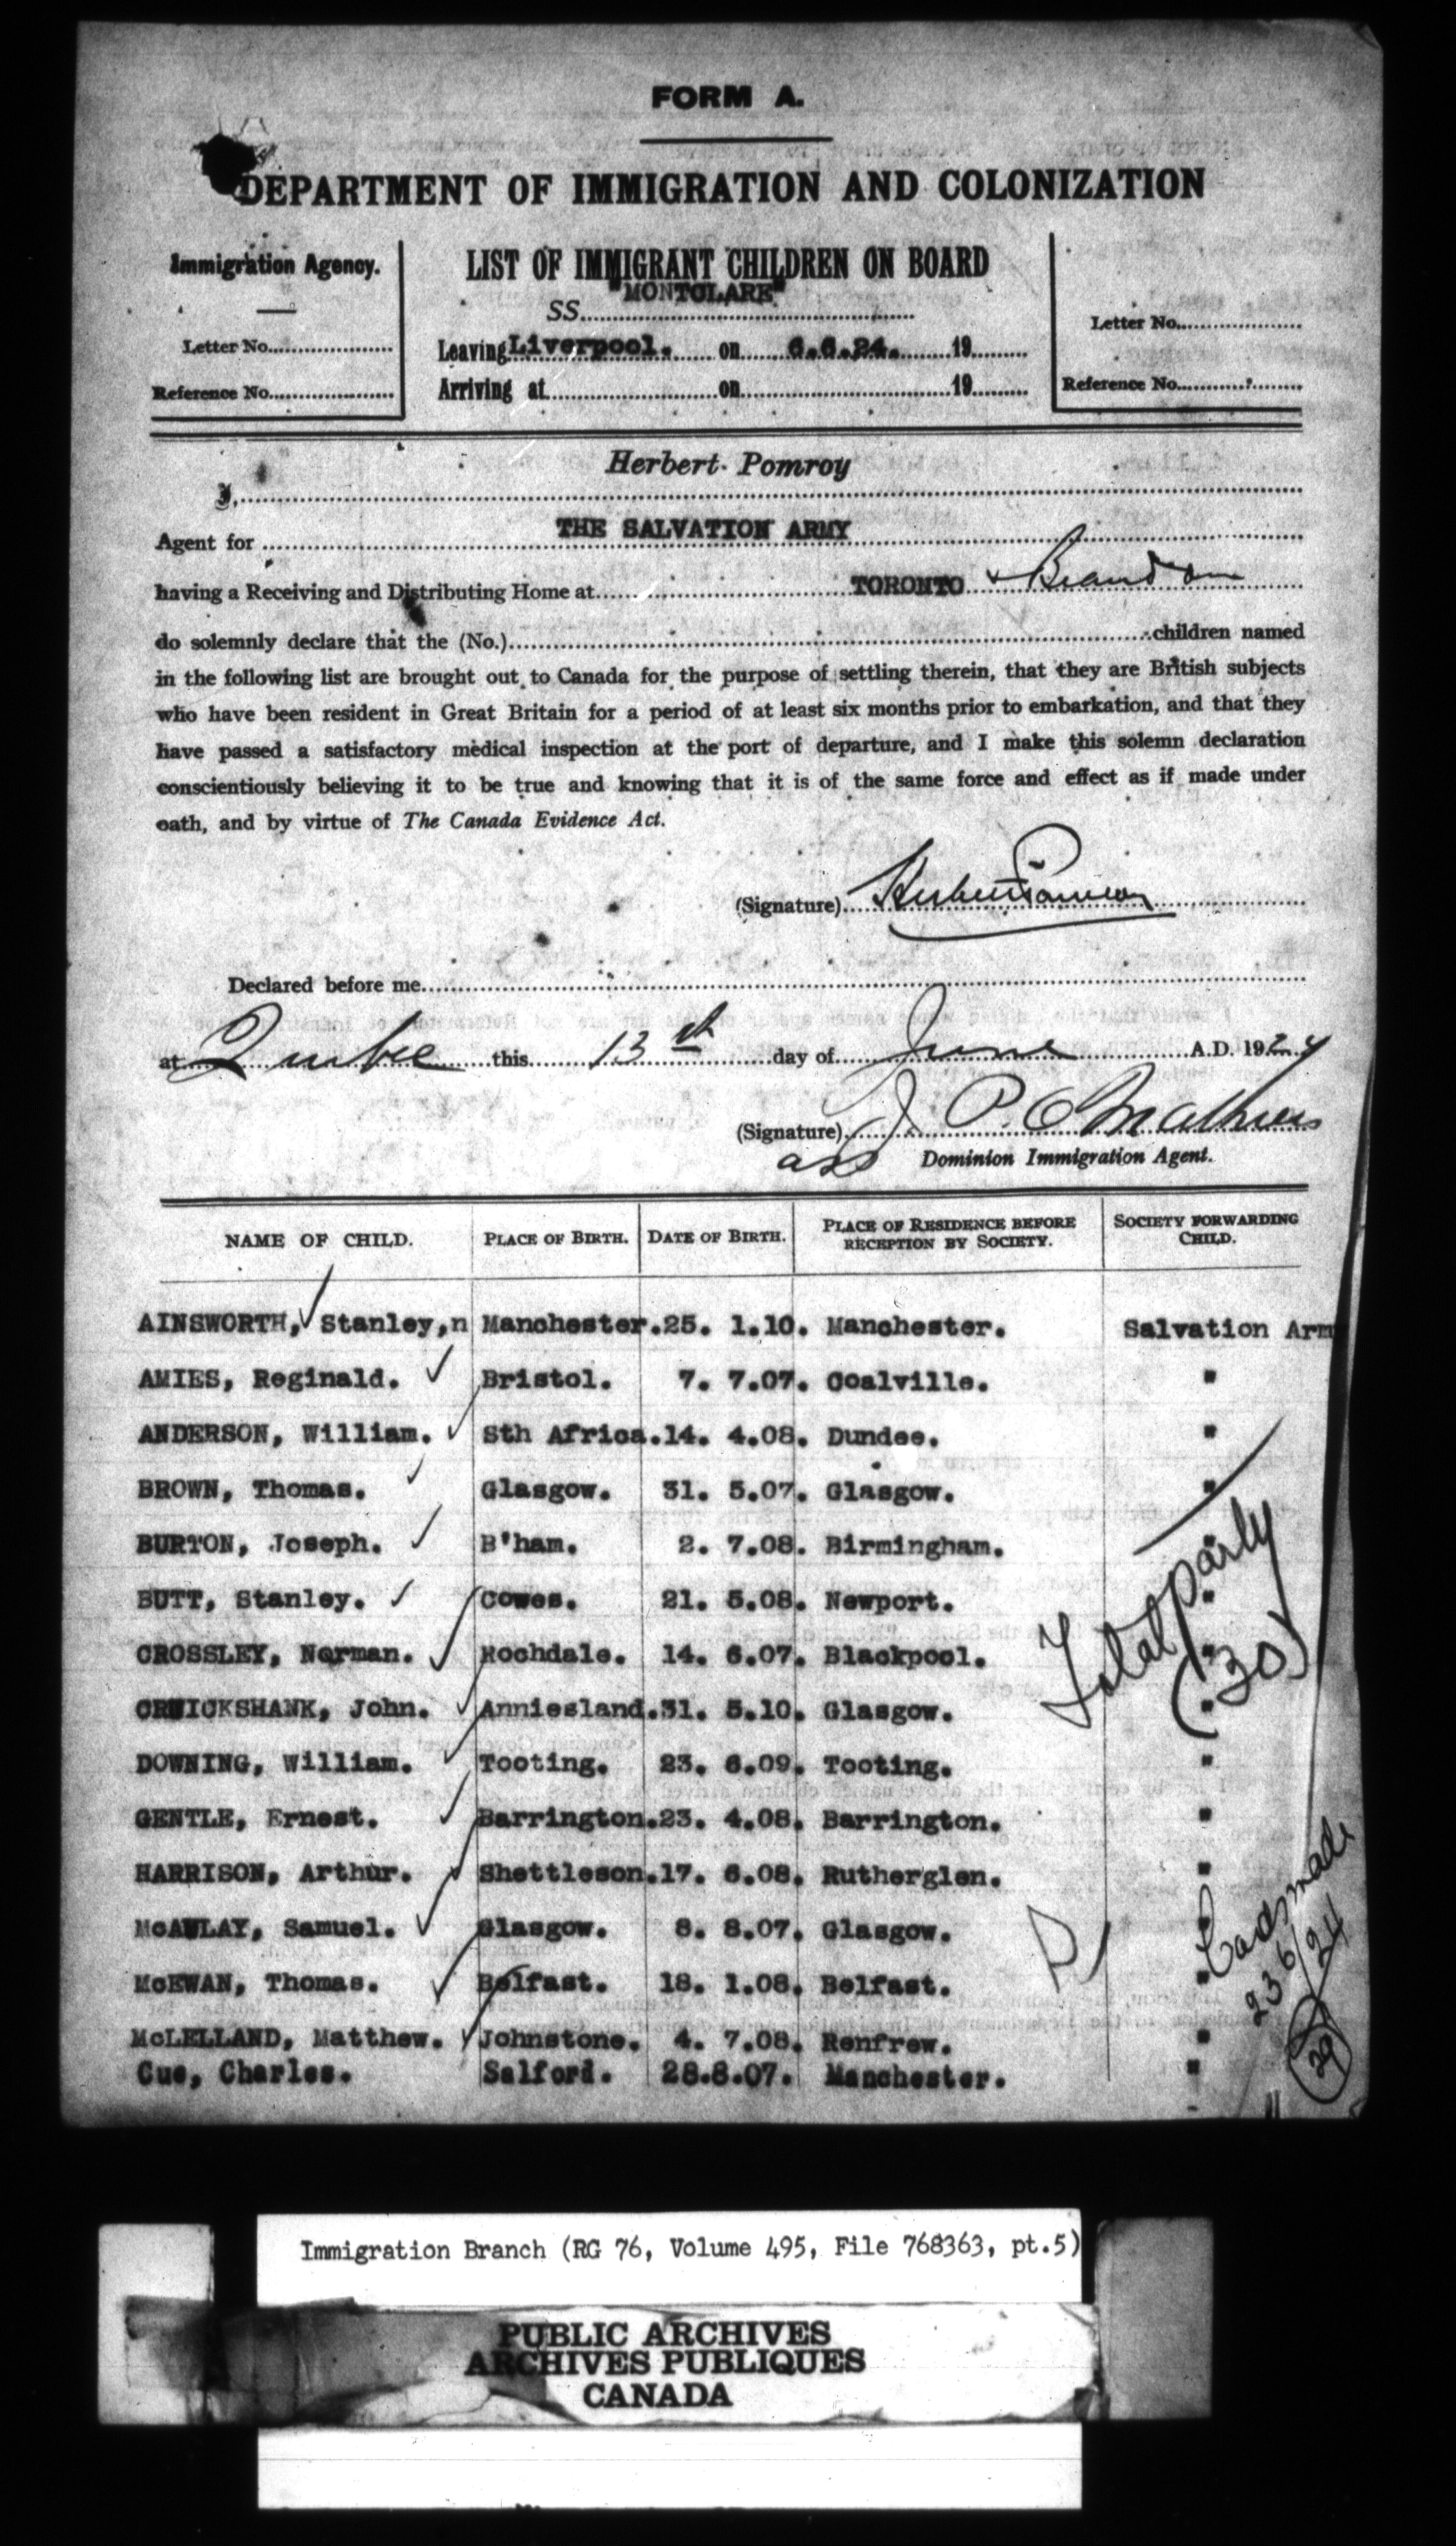 FORM A.
DEPARTMENT OF IMMIGRATION AND COLONIZATION
Immigration Agency.
Letter No.
Reference No.
LIST OF IMMIGRANT CHILDREN ON BOARD
SS "MONTCLARE"
Leaving Liverpool. on 6.6.24. 19
Arriving at on 19
Letter No.
Reference No.
I, Herbert Pomroy
Agent for THE SALVATION ARMY
having a Receiving and Distributing Home at TORONTO + Brandon
do solemnly declare that the (No.) children named
in the following list are brought out to Canada for the purpose of settling therein, that they are British subjects
who have been resident in Great Britain for a period of at least six months prior to embarkation, and that they
have passed a satisfactory medical inspection at the port of departure, and I make this solemn declaration
conscientiously believing it to be true and knowing that it is of the same force and effect as if made under
oath, and by virtue of The Canada Evidence Act.
(Signature) Herbert Pomroy
Declared before me
at Quebec this 13th day of June A.D. 1924
(Signature) J. P. O Mathieu
ass Dominion Immigration Agent.
NAME OF CHILD. PLACE OF BIRTH. DATE OF BIRTH. PLACE OF RESIDENCE BEFORE RECEPTION BY SOCIETY. SOCIETY FORWARDING CHILD.
AINSWORTH, Stanley,n Manchester. 25. 1.10. Manchester. Salvation Arm
AMIES, Reginald. Bristol. 7. 7.07. Coalville. "
ANDERSON, William. Sth Africa. 14. 4.08. Dundee. "
BROWN, Thomas. Glasgow. 31. 5.07. Glasgow. "
BURTON, Joseph. B'ham. 2. 7.08. Birmingham. "
BUTT, Stanley. Cowes. 21. 5.08. Newport. "
CROSSLEY, Norman. Rochdale. 14. 6.07. Blackpool. "
CRUICKSHANK, John. Anniesland. 31. 5.10. Glasgow. "
DOWNING, William. Tooting. 23. 6.09. Tooting. "
GENTLE, Ernest. Barrington. 23. 4.08. Barrington. "
HARRISON, Arthur. Shettleson. 17. 6.08. Rutherglen. "
McAULAY, Samuel. Glasgow. 8. 8.07. Glasgow. "
McEWAN, Thomas. Belfast. 18. 1.08. Belfast. "
McLELLAND, Matthew. Johnstone. 4. 7.08. Renfrew. "
Cue, Charles. Salford. 28.8.07. Manchester. "
Total party
(30)
Cards made
23 6/24
29
Immigration Branch (RG 76, Volume 495, File 768363, pt.5)
PUBLIC ARCHIVES
ARCHIVES PUBLIQUES
CANADA